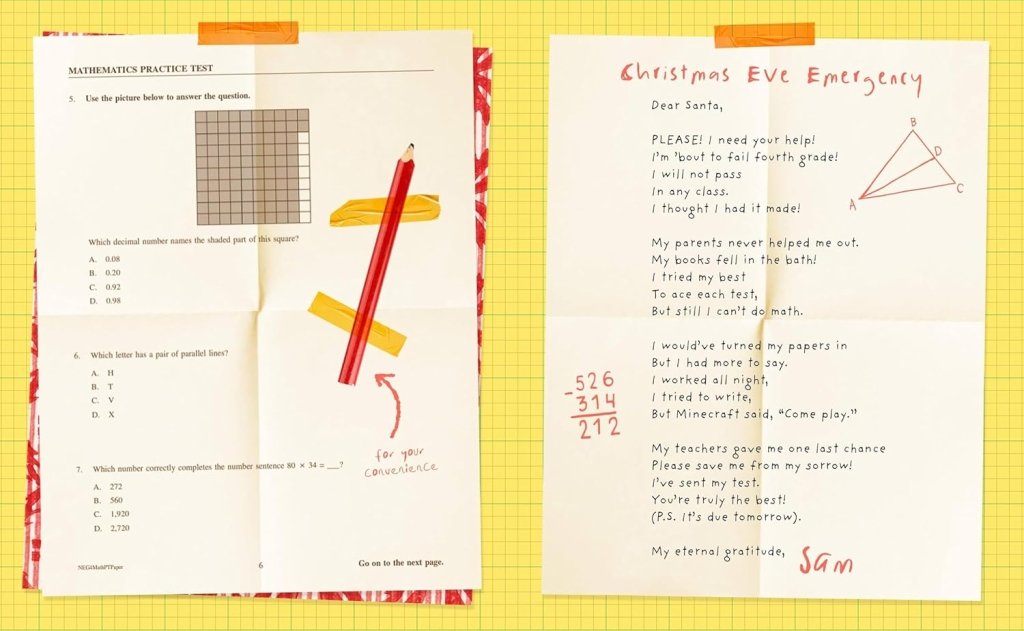 MATHEMATICS PRACTICE TEST
5. Use the picture below to answer the question.
Which decimal number names the shaded part of this square?
A. 0.08
B. 0.20
C. 0.92
D. 0.98
6. Which letter has a pair of parallel lines?
A. H
B. T
C. V
D. X
7. Which number correctly completes the number sentence 80 × 34 = __?
A. 272
B. 560
C. 1,920
D. 2,720
for your
convenience
NEG4MathPTPaper
6
Go on to the next page.
Christmas Eve Emergency
Dear Santa,
PLEASE! I need your help!
I'm 'bout to fail fourth grade!
I will not pass
In any class.
I thought I had it made!
B
D
C
A
My parents never helped me out.
My books fell in the bath!
I tried my best
To ace each test,
But still I can't do math.
I would've turned my papers in
But I had more to say.
I worked all night,
I tried to write,
But Minecraft said, "Come play."
-526
314
212
My teachers gave me one last chance
Please save me from my sorrow!
I've sent my test.
You're truly the best!
(P.S. It's due tomorrow).
My eternal gratitude,
Sam